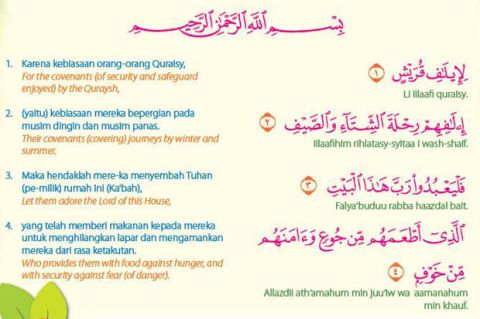 بِسْمِ اللَّهِ الرَّحْمَٰنِ الرَّحِيمِ
1. Karena kebiasaan orang-orang Quraisy,
For the covenants (of security and safeguard
enjoyed) by the Quraysh,
لِإِيلَٰفِ قُرَيْشٍ ١
Li iilaafi quraisy.
2. (yaitu) kebiasaan mereka bepergian pada
musim dingin dan musim panas.
Their convenants (covering) journeys by winter and
summer.
إِۦلَٰفِهِمْ رِحْلَةَ ٱلشِّتَآءِ وَٱلصَّيْفِ ٢
Iilaafihim rihlatasy-syitaa i wash-shaif.
3. Maka hendaklah mere-ka menyembah Tuhan
(pe-milik) rumah ini (Ka'bah),
Let them adore the Lord of this House,
فَلْيَعْبُدُوا۟ رَبَّ هَٰذَا ٱلْبَيْتِ ٣
Falya'buduu rabba haazdal bait.
4. yang telah memberi makanan kepada mereka
untuk menghilangkan lapar dan mengamankan
mereka dari rasa ketakutan.
Who provides them with food against hunger, and
with security against fear (of danger).
ٱلَّذِىٓ أَطْعَمَهُم مِّن جُوعٍ وَءَامَنَهُم
مِّنْ خَوْفٍۭ ٤
Allazdii ath'amahum min juu'iw wa aamanahum
min khauf.